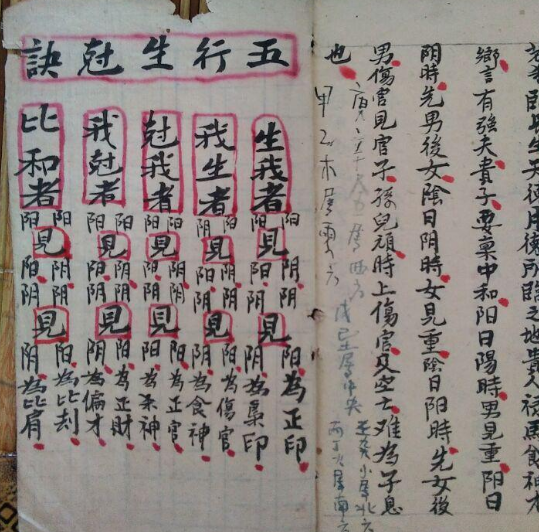 師長生天德月德所臨之地貴人祿馬食神
鄉言有強夫貴子要稟中和阳日陽時男見重阳日
阴時先男後女陰日阴時女見重陰日阳時先女後
男傷官見官子孫兒頑時上傷官及空亡难為子息
也
戊己属中央
壬癸水属北方
丙丁火属南方
甲乙木属東方
五行生尅訣
生我者
阳見阴阴見阳為正印
阳見阳阴見阴為梟印
我生者
阳見阴阴見阳為傷官
阳見阳阴見阴為食神
尅我者
阳見阴阴見阳為正官
阳見阳阴見阴為杀神
我尅者
阳見阴阴見阳為正財
阳見阳阴見阴為偏才
比和者
阳見阴阴見阳為比刦
阳見阳阴見阴為比肩